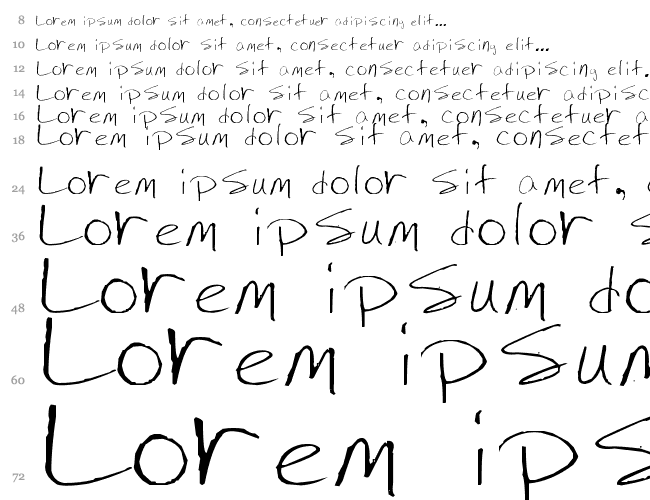 8 Lorem ipsum dolor sit amet, consectetuer adipiscing elit...
10 Lorem ipsum dolor sit amet, consectetuer adipiscing elit...
12 Lorem ipsum dolor sit amet, consectetuer adipiscing elit.
14 Lorem ipsum dolor sit amet, consectetuer adipisc
16 Lorem ipsum dolor sit amet, consectetuer a
18 Lorem ipsum dolor sit amet, consectet
24 Lorem ipsum dolor sit amet,
36 Lorem ipsum dolor s
48 Lorem ipsum do
60 Lorem ipsum
72 Lorem ips